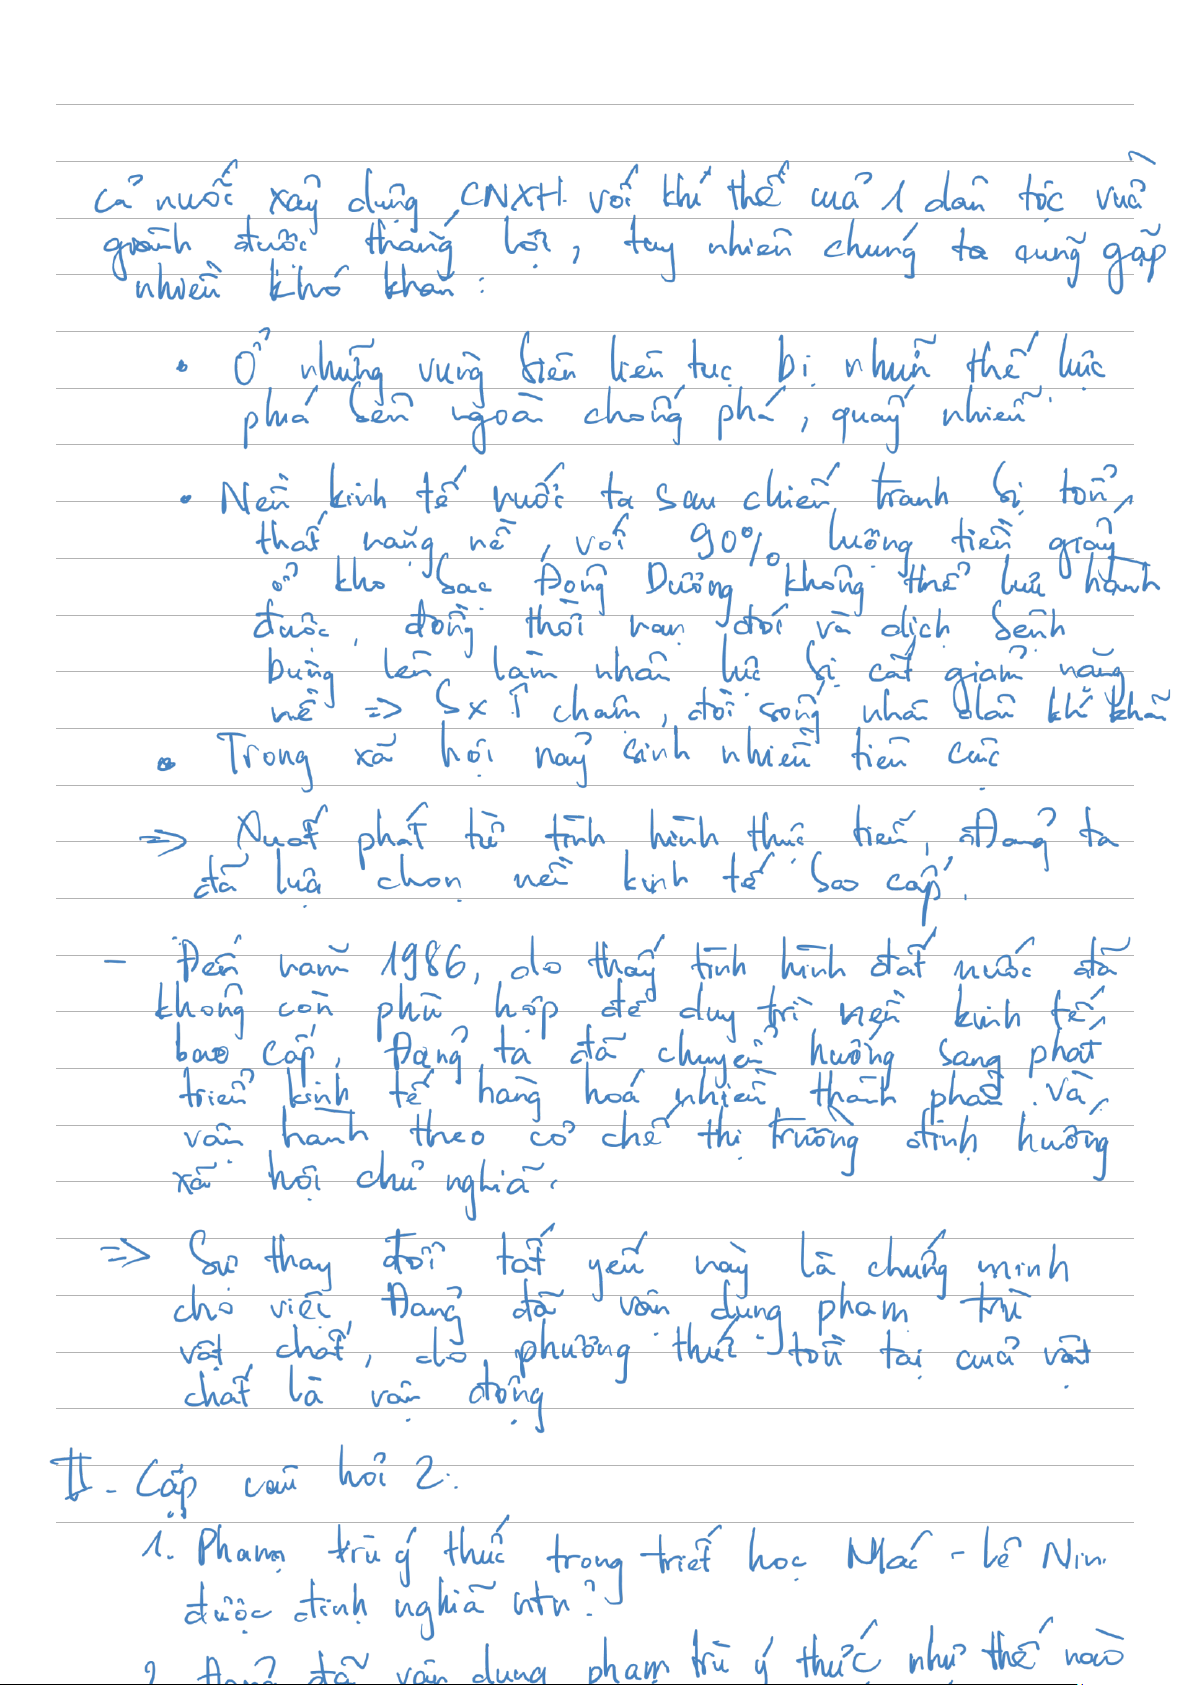 cả nước xây dựng CNXH với khí thế của 1 dân tộc vừa
giành được thắng lợi, tuy nhiên chúng ta cũng gặp
nhiều khó khăn:
• Ở những vùng biên liên tục bị những thế lực
phá bên ngoài chống phá, quấy nhiễu
• Nền kinh tế nước ta sau chiến tranh bị tổn
thất nặng nề, với 90% lượng tiền giấy
ở kho bạc Đông Dương không thể lưu hành
được, đồng thời nạn đói và dịch bệnh
bùng lên làm nhân lực bị cắt giảm nặng
nề => Sx ì chậm, đời sống nhân dân khó khăn
• Trong xã hội nảy sinh nhiều tiêu cực
=> Xuất phát từ tình hình thực tiễn, Đảng ta
đã lựa chọn nền kinh tế bao cấp.
- Đến năm 1986, do thấy tình hình đất nước đã
không còn phù hợp để duy trì nền kinh tế
bao cấp, Đảng ta đã chuyển hướng sang phát
triển kinh tế hàng hoá nhiều thành phần và
vận hành theo cơ chế thị trường định hướng
xã hội chủ nghĩa.
=> Sự thay đổi tất yếu này là chứng minh
cho việc Đảng đã vận dụng phạm trù
vật chất, do phương thức tồn tại của vật
chất là vận động
II - Cặp câu hỏi 2:
1. Phạm trù ý thức trong triết học Mác - Lê Nin
được định nghĩa ntn?
2. Đảng đã vận dụng phạm trù ý thức như thế nào